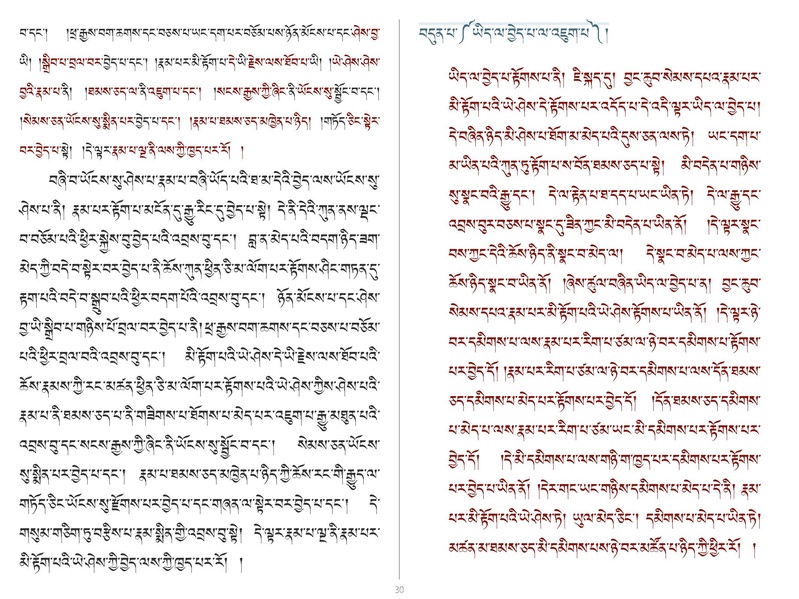 བ་དང་། །ཕྲ་རྒྱས་བག་ཆགས་དང་བཅས་པ་ཡང་དག་པར་བཅོམ་པས་ཉོན་མོངས་པ་དང་ཤེས་བྱ་
ཡི། །སྒྲིབ་པ་བྲལ་བར་བྱེད་པ་དང་། །རྣམ་པར་མི་རྟོག་པ་དེ་ཡི་རྗེས་ལས་ཐོབ་པ་ཡི། །ཡེ་ཤེས་ཤེས་
བྱའི་རྣམ་པ་ནི། །ཐམས་ཅད་ལ་ནི་འཇུག་པ་དང་། །སངས་རྒྱས་ཀྱི་ཞིང་ནི་ཡོངས་སུ་སྦྱོང་བ་དང་།
།སེམས་ཅན་ཡོངས་སུ་སྨིན་པར་བྱེད་པ་དང་། །རྣམ་པ་ཐམས་ཅད་མཁྱེན་པ་ཉིད། །གཏོད་ཅིང་སྟེར་
བར་བྱེད་པ་སྟེ། །དེ་ལྟར་རྣམ་པ་ལྔ་ནི་ལས་ཀྱི་ཁྱད་པར་རོ། །
བཞི་བ་ཡོངས་སུ་ཤེས་པ་རྣམ་པ་བཞི་ཡོད་པའི་ཐ་མ་དེའི་བྱེད་ལས་ཡོངས་སུ་
ཤེས་པ་ནི། རྣམ་པར་རྟོག་པ་མངོན་དུ་རྒྱུ་རིང་དུ་བྱེད་པ་སྟེ། དེ་ནི་དེའི་ཀུན་ནས་ལྡང་
བ་བཅོམ་པའི་ཕྱིར་སྐྱེས་བུ་བྱེད་པའི་འབྲས་བུ་དང་། བླ་ན་མེད་པའི་བདག་ཉིད་ཟག་
མེད་ཀྱི་བདེ་བ་སྟེར་བར་བྱེད་པ་ནི་ཆོས་ཀུན་ཕྱིན་ཅི་མ་ལོག་པར་རྟོགས་ཤིང་གཏན་དུ་
རྟག་པའི་བདེ་བ་སྒྲུབ་པའི་ཕྱིར་བདག་པོའི་འབྲས་བུ་དང་། ཉོན་མོངས་པ་དང་ཤེས་
བྱ་ཡི་སྒྲིབ་པ་གཉིས་པོ་བྲལ་བར་བྱེད་པ་ནི། ཕྲ་རྒྱས་བག་ཆགས་དང་བཅས་པ་བཅོམ་
པའི་ཕྱིར་བྲལ་བའི་འབྲས་བུ་དང་། མི་རྟོག་པའི་ཡེ་ཤེས་དེ་ཡི་རྗེས་ལས་ཐོབ་པའི་
ཆོས་རྣམས་ཀྱི་རང་མཚན་ཕྱིན་ཅི་མ་ལོག་པར་རྟོགས་པའི་ཡེ་ཤེས་ཀྱིས་ཤེས་པའི་
རྣམ་པ་ནི་ཐམས་ཅད་པ་ནི་གཟིགས་པ་ཐོགས་པ་མེད་པར་འཇུག་པ་རྒྱུ་མཐུན་པའི་
འབྲས་བུ་དང་སངས་རྒྱས་ཀྱི་ཞིང་ནི་ཡོངས་སུ་སྦྱོང་བ་དང་། སེམས་ཅན་ཡོངས་
སུ་སྨིན་པར་བྱེད་པ་དང་། རྣམ་པ་ཐམས་ཅད་མཁྱེན་པ་ཉིད་ཀྱི་ཆོས་རང་གི་རྒྱུད་ལ་
གཏོད་ཅིང་ཡོངས་སུ་རྫོགས་པར་བྱེད་པ་དང་གཞན་ལ་སྟེར་བར་བྱེད་པ་དང་། དེ་
གསུམ་གཅིག་ཏུ་བརྩིས་པ་རྣམ་སྨིན་གྱི་འབྲས་བུ་སྟེ། དེ་ལྟར་རྣམ་པ་ལྔ་ནི་རྣམ་པར་
མི་རྟོག་པའི་ཡེ་ཤེས་ཀྱི་བྱེད་ལས་ཀྱི་ཁྱད་པར་རོ། །
བདུན་པ་༼ཡིད་ལ་བྱེད་པ་ལ་འཇུག་པ༽།
ཡིད་ལ་བྱེད་པ་རྟོགས་པ་ནི། ཇི་སྐད་དུ། བྱང་ཆུབ་སེམས་དཔའ་རྣམ་པར་
མི་རྟོག་པའི་ཡེ་ཤེས་དེ་རྟོགས་པར་འདོད་པ་དེ་འདི་ལྟར་ཡིད་ལ་བྱེད་པ།
དེ་བཞིན་ཉིད་མི་ཤེས་པ་ཐོག་མ་མེད་པའི་དུས་ཅན་ལས་ཏེ། ཡང་དག་པ་
མ་ཡིན་པའི་ཀུན་ཏུ་རྟོག་པ་ས་བོན་ཐམས་ཅད་པ་སྟེ། མི་བདེན་པ་གཉིས་
སུ་སྣང་བའི་རྒྱུ་དང་། དེ་ལ་རྟེན་པ་ཐ་དད་པ་ཡང་ཡིན་ཏེ། དེ་ལ་རྒྱུ་དང་
འབྲས་བུར་བཅས་པ་སྣང་དུ་ཟིན་ཀྱང་མི་བདེན་པ་ཡིན་ནོ། །དེ་ལྟར་སྣང་
བས་ཀྱང་དེའི་ཆོས་ཉིད་ནི་སྣང་བ་མེད་ལ། དེ་སྣང་བ་མེད་པ་ལས་ཀྱང་
ཆོས་ཉིད་སྣང་བ་ཡིན་ནོ། །ཞེས་ཚུལ་བཞིན་ཡིད་ལ་བྱེད་པ་ན། བྱང་ཆུབ་
སེམས་དཔའ་རྣམ་པར་མི་རྟོག་པའི་ཡེ་ཤེས་རྟོགས་པ་ཡིན་ནོ། །དེ་ལྟར་ཉེ་
བར་དམིགས་པ་ལས་རྣམ་པར་རིག་པ་ཙམ་ལ་ཉེ་བར་དམིགས་པ་རྟོགས་
པར་བྱེད་དོ། །རྣམ་པར་རིག་པ་ཙམ་ལ་ཉེ་བར་དམིགས་པ་ལས་དོན་ཐམས་
ཅད་དམིགས་པ་མེད་པར་རྟོགས་པར་བྱེད་དོ། །དོན་ཐམས་ཅད་དམིགས་
པ་མེད་པ་ལས་རྣམ་པར་རིག་པ་ཙམ་ཡང་མི་དམིགས་པར་རྟོགས་པར་
བྱེད་དོ། །དེ་མི་དམིགས་པ་ལས་གཉི་ག་ཁྱད་པར་དམིགས་པར་རྟོགས་
པར་བྱེད་པ་ཡིན་ནོ། །དེར་གང་ཡང་གཉིས་དམིགས་པ་མེད་པ་དེ་ནི། རྣམ་
པར་མི་རྟོག་པའི་ཡེ་ཤེས་ཏེ། ཡུལ་མེད་ཅིང་། དམིགས་པ་མེད་པ་ཡིན་ཏེ།
མཚན་མ་ཐམས་ཅད་མི་དམིགས་པས་ཉེ་བར་མཚོན་པ་ཉིད་ཀྱི་ཕྱིར་རོ། །
30